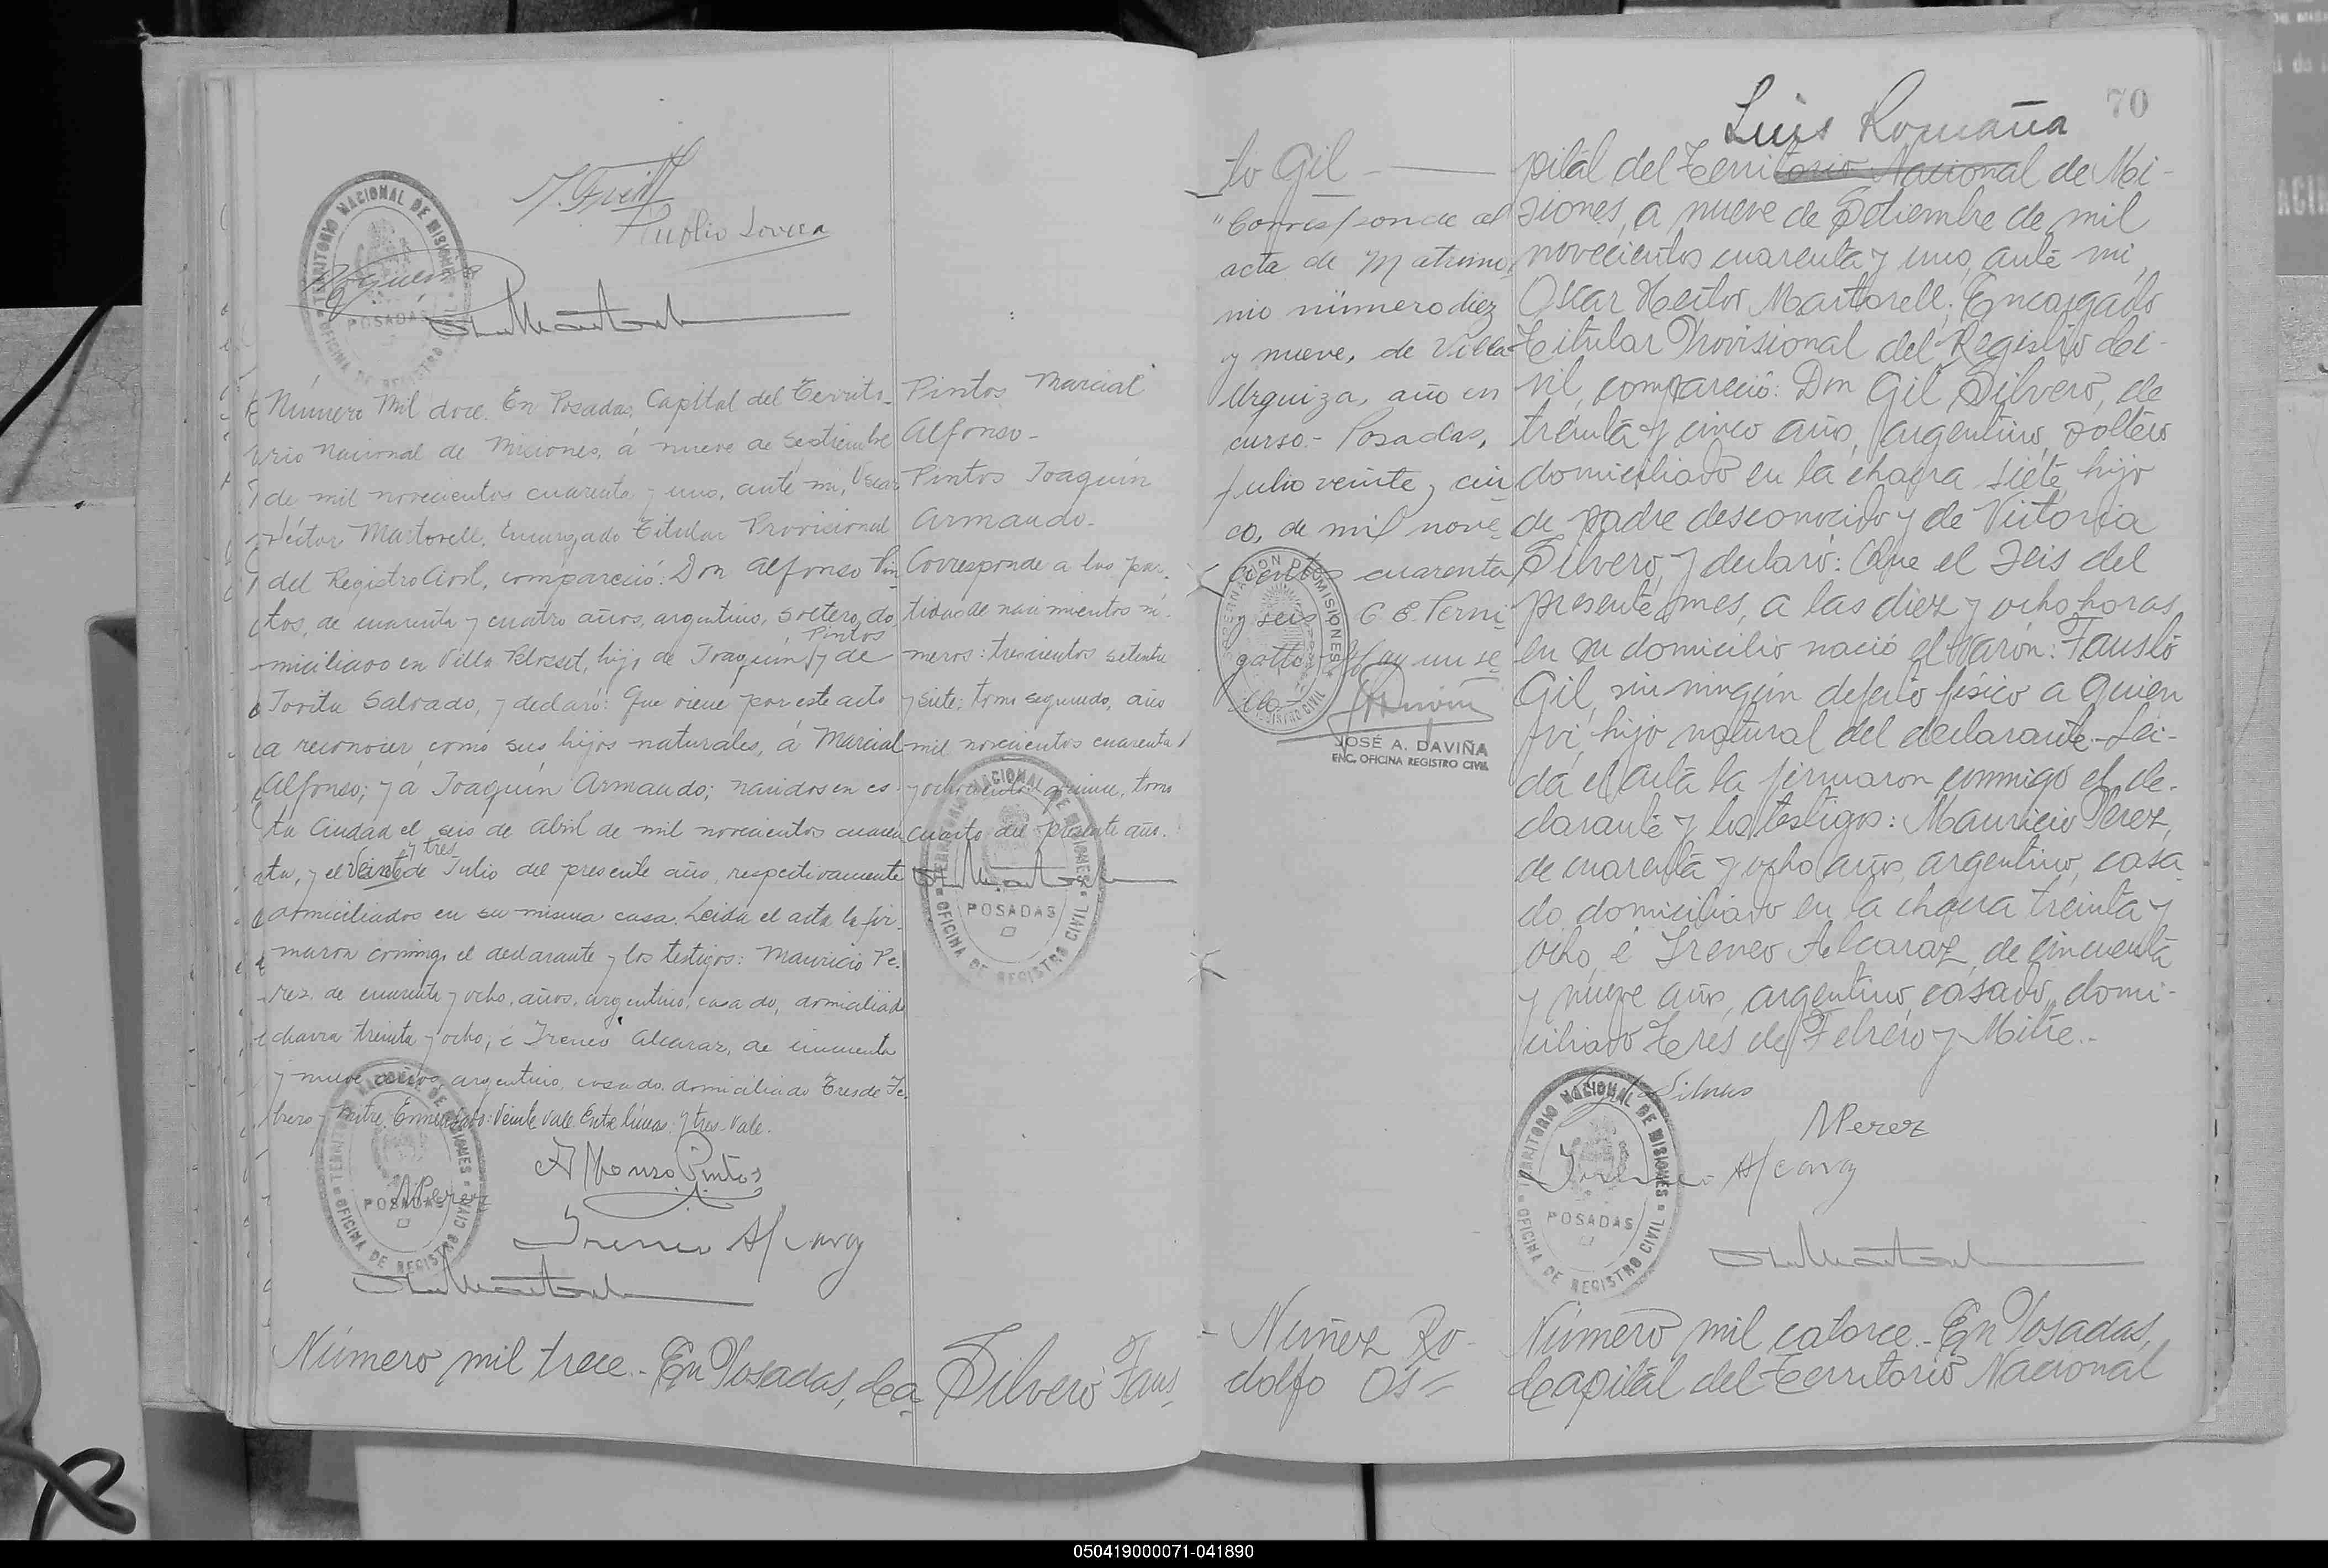 Publio Lovera
TERRITORIO NACIONAL DE MISIONES
POSADAS
OFICINA DE REGISTRO
Número Mil doce. En Posadas, Capital del Territo-
rio Nacional de Misiones, á nueve de Septiembre
de mil novecientos cuarenta y uno, ante mi, Oscar
Héctor Martorell, Encargado Titular Provisional
del Registro Civil, compareció: Don Alfonso Pin
tos, de cuarenta y cuatro años, argentino, soltero, do
miciliado en Villa Blosset, hijo de Joaquín Pintos y de
Jovita Salvado, y declaró: Que viene por este acto
a reconocer como sus hijos naturales, á Marcial
Alfonso; y á Joaquín Armando; nacidos en es
ta Ciudad el seis de Abril de mil novecientos cuaren
ta, y el Veinte y tres de Julio del presente año, respectivamente
domiciliados en su misma casa. Leída el acta la fir-
maron conmigo el declarante y los testigos: Mauricio Pe-
rez, de cuarenta y ocho, años, argentino, casado, domiciliado
chacra treinta y ocho, é Ireneo Alcaraz, de cincuenta
y nueve años, argentino, casado, domiciliado Tres de Fe-
brero y Mitre. Enmendado: Veinte Vale. Entre líneas: y tres. Vale.
Alfonso Pintos
MPerez
Ireneo Alcaraz
TERRITORIO NACIONAL DE MISIONES
POSADAS
OFICINA DE REGISTRO CIVIL
Número mil trece.- En Posadas, Ca-
Pintos Marcial
Alfonso-
Pintos Joaquín
Armando-
Corresponde a las par-
tidas de nacimientos nú-
meros: trescientos setenta
y siete; tomo segundo, año
mil novecientos cuarenta
y ochocientos quince, tomo
cuarto del presente año.
TERRITORIO NACIONAL DE MISIONES
POSADAS
OFICINA DE REGISTRO CIVIL
Silvero Faus
70
Luis Romaña
to Gil
"Corresponde al
acta de Matrimo
nio número diez
y nueve, de Villa
Urquiza, año en
curso.- Posadas,
julio veinte y cin
co, de mil nove-
cientos cuarenta
y seis
Hay un se
llo
GOBERNACION DE MISIONES
REGISTRO CIVIL
JOSÉ A. DAVIÑA
ENC. OFICINA REGISTRO CIVIL
Nuñez Ro-
dolfo Os=
pital del Territorio Nacional de Mi-
siones, a nueve de Setiembre de mil
novecientos cuarenta y uno, ante mi,
Oscar Hector Martorell, Encargado
Titular Provisional del Registro Ci-
vil, compareció: Don Gil Silvero, de
treinta y cinco años, argentino, soltero
domiciliado en la chacra siete, hijo
de padre desconocido y de Victoria
Silvero, y declaró: Que el seis del
presente mes, a las diez y ocho horas
en su domicilio nació el varón: Fausto
Gil, sin ningún defecto físico a quien
ví, hijo natural del declarante.- Leí-
da el acta la firmaron conmigo el de-
clarante y los testigos: Mauricio Perez,
de cuarenta y ocho años, argentino, casa
do, domiciliado en la chacra treinta y
ocho, é Ireneo Alcaraz, de cincuenta
y nueve años, argentino, casado, domi-
ciliado Tres de Febrero y Mitre.-
Gil Silvero
MPerez
Ireneo Alcaraz
TERRITORIO NACIONAL DE MISIONES
POSADAS
OFICINA DE REGISTRO CIVIL
Número mil catorce.- En Posadas,
Capital del Territorio Nacional
050419000071-041890